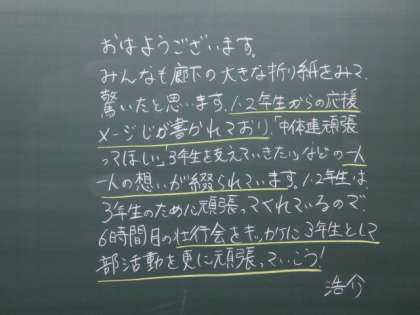 おはようございます。
みんなも廊下の大きな折り紙をみて、
驚いたと思います。1・2年生からの応援
メージじが書かれており、「中体連頑張
ってほしい」「3年生を支えていきたい」などの一人
一人の想いが綴られています。1・2年生は、
3年生のために頑張ってくれているので、
6時間目の壮行会をキッカケに3年生として
部活動を更に頑張っていこう!
浩介